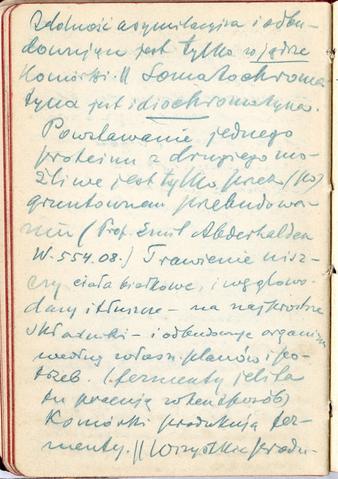 Zdolność asymilacyjna i odbu-
dowująca jest tylko w jądrze
Komórki. || Somatochroma-
tyna jest idiochromatyną.
Powstawanie jednego
proteinu z drugiego mo-
żliwe jest tylko przez (po)
gruntownem przebudowa-
niu (Prof. Emil Abderhalden
W. 554.08.) Trawienie nisz-
czy ciała białkowe, i węglowo-
dany i tłuszcze – na najprostsze
składniki – i odbudowuje organizm
według własn. planów i po-
trzeb. (fermenty jelita
tu pracują w ten sposób)
Komórki produkują fer-
menty. || Wszystkie produ-